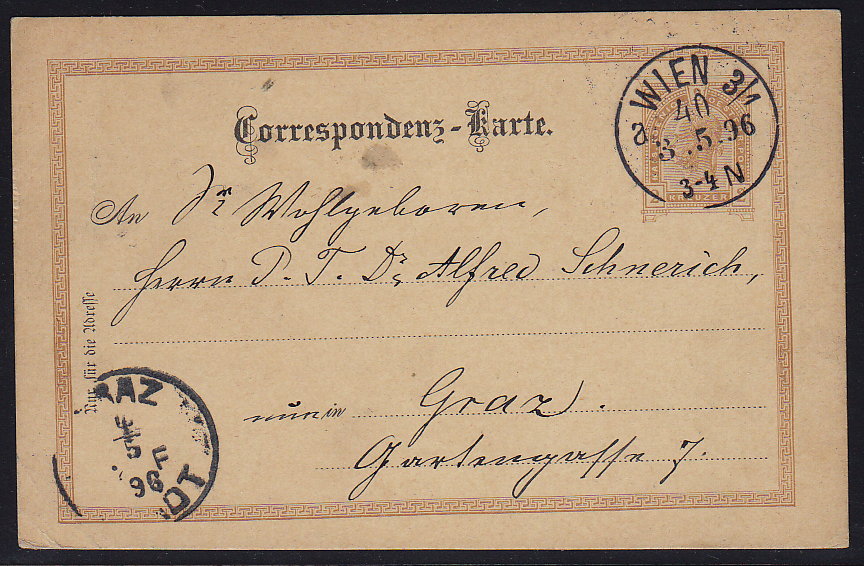 Correspondenz-Karte.
WIEN 3/1
a
40
3.5.96
3-4 N
2 KREUZER 2
An Sr Wohlgeboren,
Herrn P. T. Dr Alfred Schnerich,
Nur für die Adresse
nun in Graz.
Gartengasse 7.
RAZ
5
96
F
DT